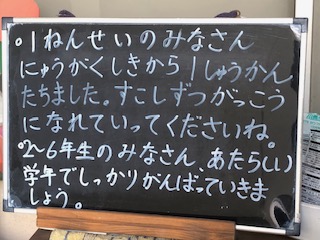 。1ねんせいのみなさん
にゅうがくしきから1しゅうかん
たちました。すこしずつがっこう
になれていってくださいね。
。2~6年生のみなさん、あたらしい
学年でしっかりがんばっていきま
しょう。